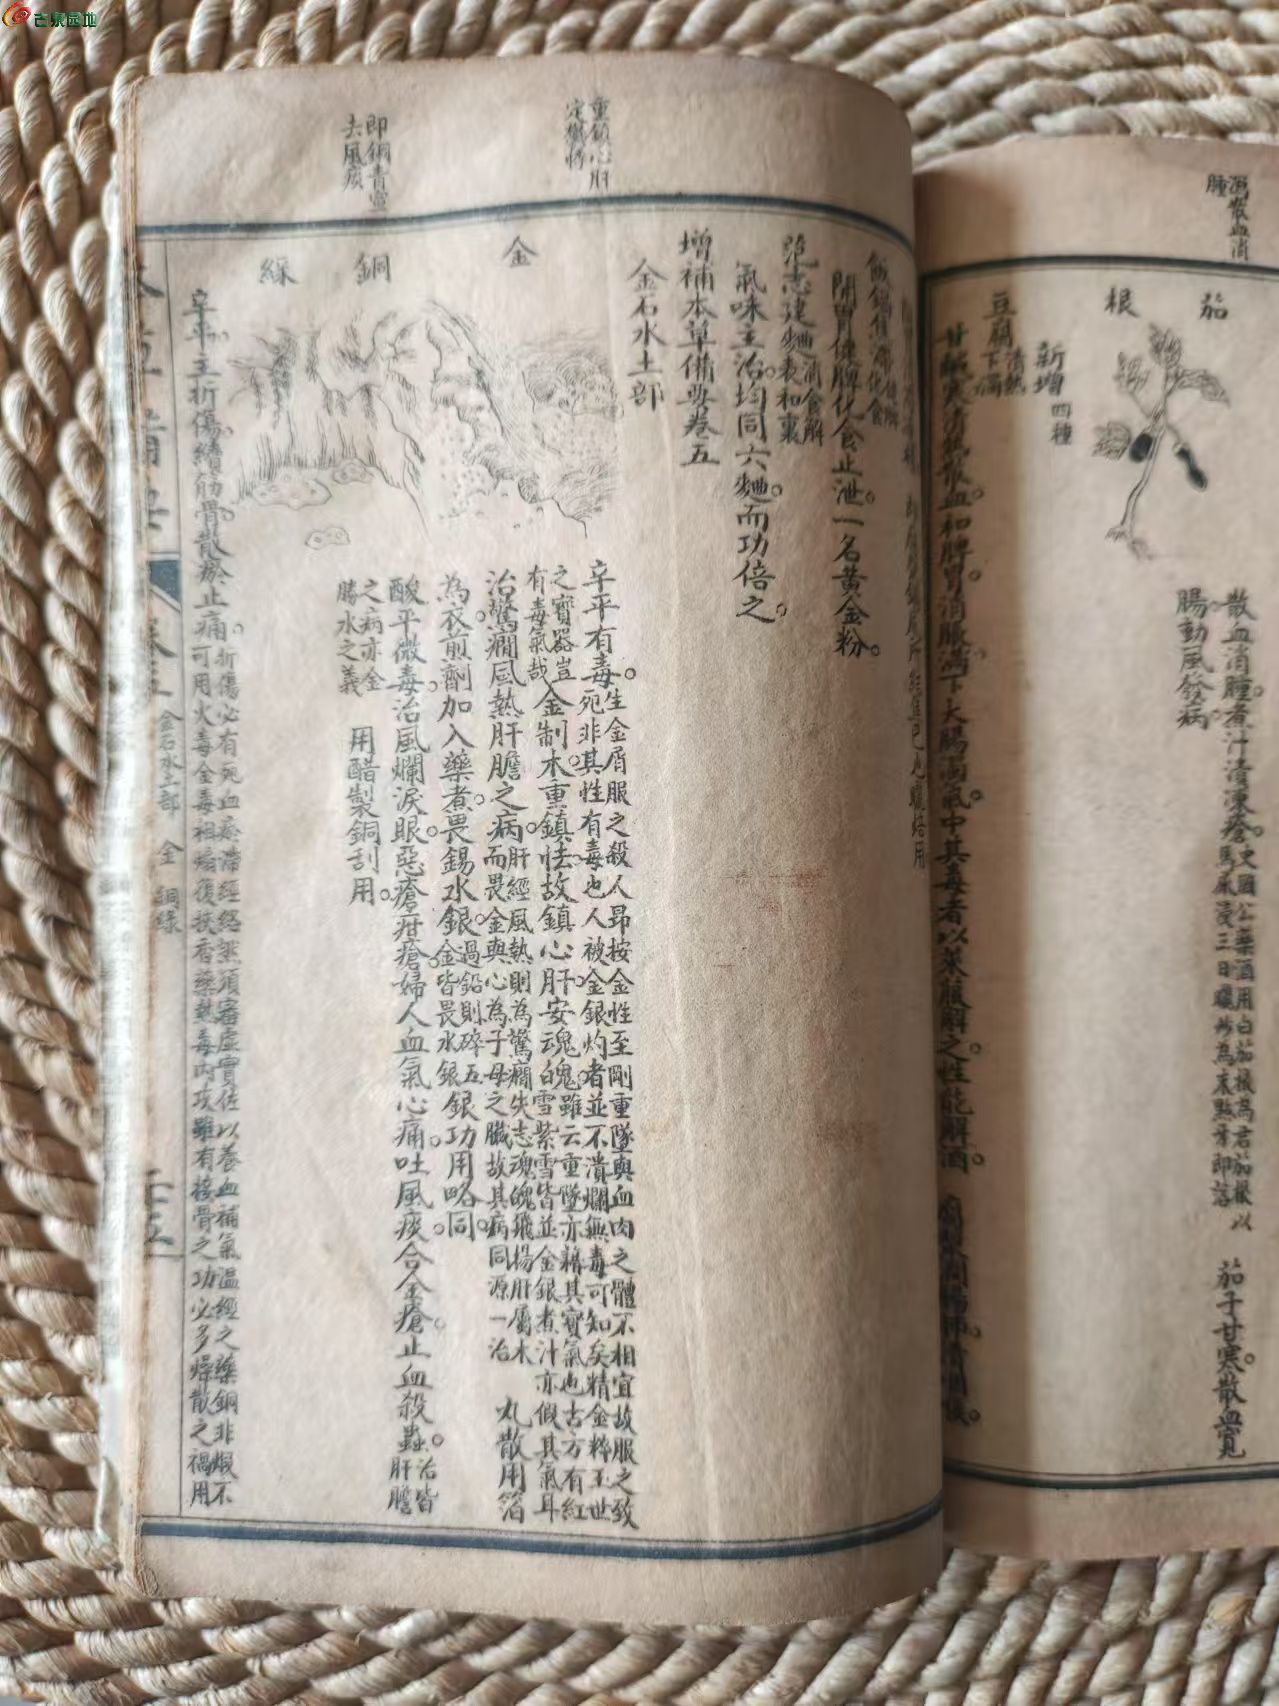 古泉园地
消散血消
腫
茄
根
散血消腫煮汁漬凍瘡。史國公藥酒用白茄根為君茄根以
馬尿浸三日曬炒為末點牙即落
茄子甘寒。散血寬
腸動風發病
新增四種
豆腐清熱
下濁
甘鹹寒清熱散血和脾胃。消脹滿下大腸濁氣。中其毒者以萊菔解之。性能解酒
飯鍋焦滯化食
開胃健脾化食止泄。一名黃金粉。
范志建麯消食解
表和裏
氣味主治。均同六麯。而功倍之。
增補本草備要卷五
金石水土部
重鎮心肝
定驚悸
金
辛平有毒。生金屑服之殺人昂按金性至剛重墜與血肉之體不相宜故服之致
死非其性有毒也人被金銀灼者並不潰爛無毒可知矣精金粹玉世
之寶器豈
有毒氣哉
金制木。重鎮怯。故鎮心肝安魂魄。雖云重墜亦藉其寶氣也古方有紅
白雪紫雪皆並金銀煮汁亦假其氣耳
治驚癇風熱肝膽之病。肝經風熱則為驚癇失志魂魄飛揚肝屬木
而畏金與心為子母之臟故其病同源一治
丸散用箔
為衣。煎劑加入藥煮。畏錫水銀。過鉛則碎五
金皆畏水銀
銀功用略同。
即銅青宣
去風痰
銅
綠
酸平微毒。治風爛淚眼。惡瘡疳瘡。婦人血氣心痛。吐風痰。合金瘡。止血殺蟲。治皆
肝膽
之病亦金
勝水之義
用醋製銅刮用。
辛平。主折傷續筋骨。散瘀止痛。折傷必有死血瘀滯經絡然須審虛實佐以養血補氣溫經之藥銅非煅不
可用火毒金毒相燔復挾香藥熱毒內攻雖有接骨之功必多燥散之禍用
金石水土部
金
銅綠